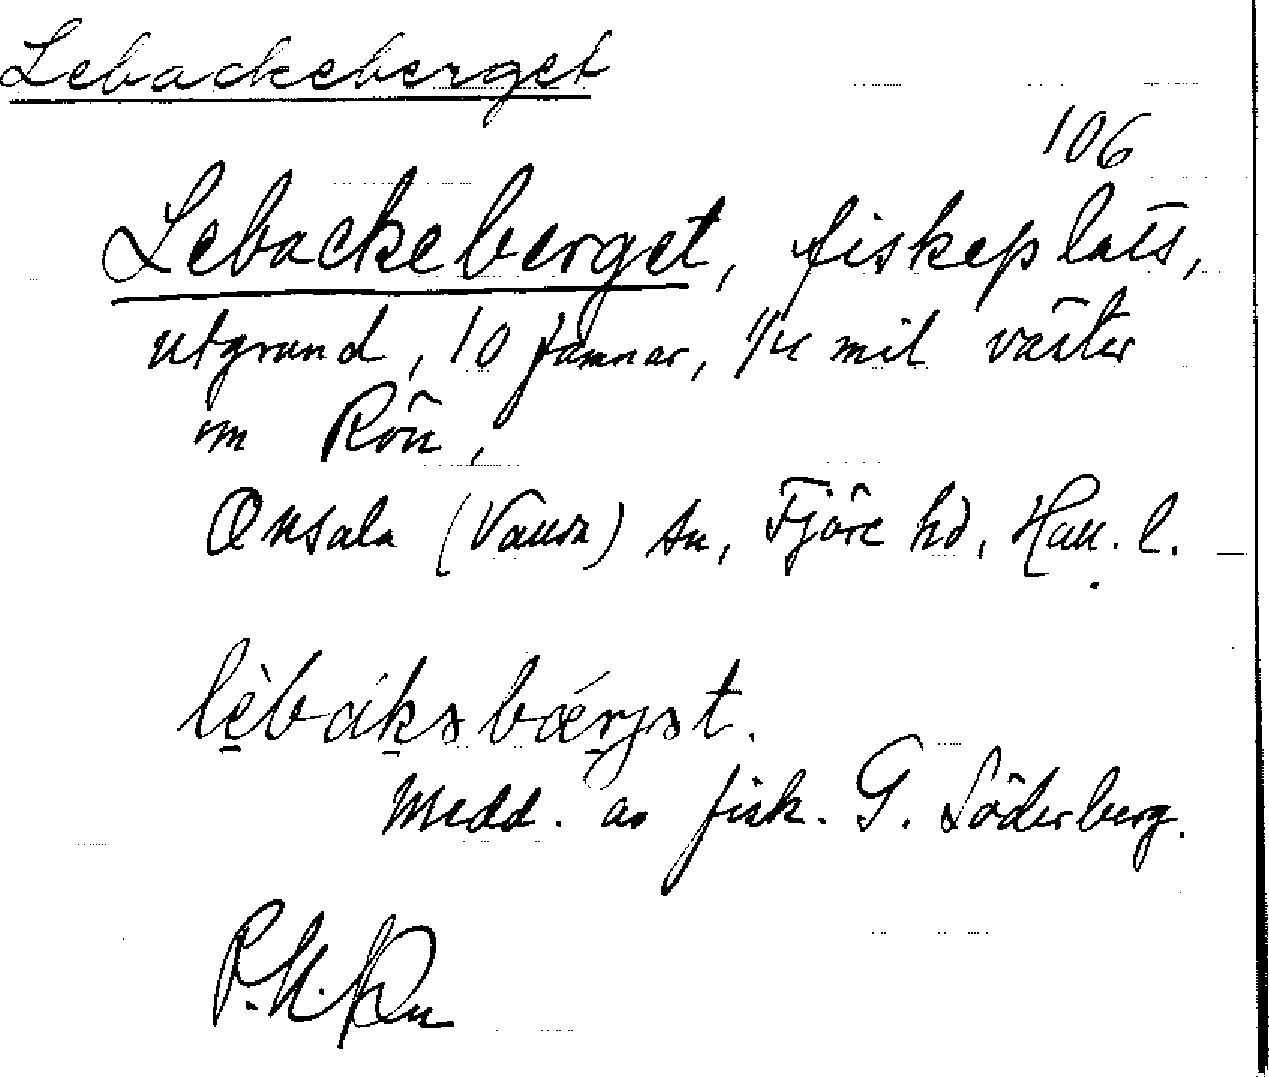 Lebackeberget
106
Lebackeberget, fiskeplats,
utgrund, 10 famnar, 1/4 mil väster
om Rön,
Onsala (Vallda) sn, Fjäre hd, Hall. l.
lèbáksbǽrjət.
Medd. av fisk. G. Söderberg.